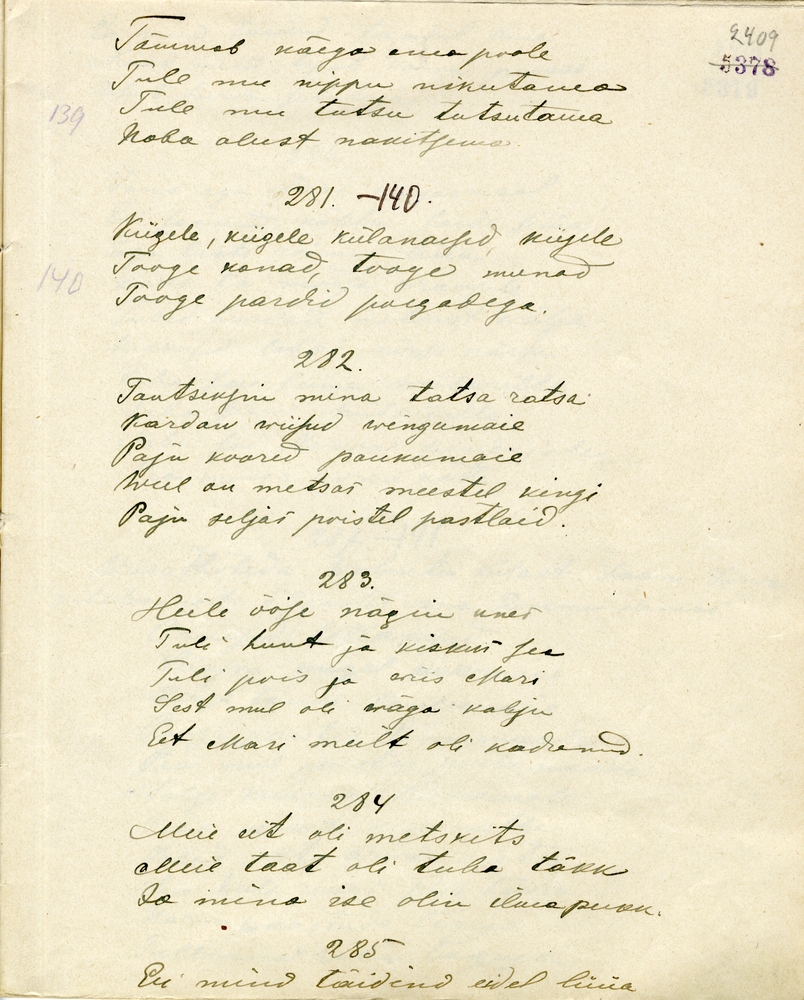 2409
5378
Tõmmab käega oma poole
Tule mu nippu nikutama
139
Tule mu tutsu tutsutama
Naba alust nakitsema
281. -140.
Kiigele, kiigele külanaesed, kiigele
140
Tooge kanad, tooge munad
Tooge pardid poegadega.
282.
Tantsiksin mina tatsa ratsa
Kardan wiisud wingumaie
Paju koored paukumaie
Weel on metsas meestel kingi
Paju seljas poistel pastlaid.
283.
Heile ööse nägin unes
Tuli hunt ja kiskus sea
Tuli pois ja wiis Mari
Sest mul oli wäga kahju
Et Mari meilt oli kadunud.
284
Meie eit oli metskits
Meie taat oli tuha täkk
Ja mina ise olin ilmapukk.
285
Ei mind täidind eidel lüüa